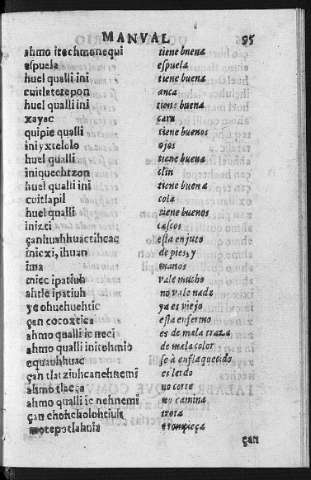 MANVAL 95
ahmo itechmonequi tiene buena
espuela espuela
huel qualli ini tiene buena
cuitletepon anca
huel qualli ini tiene buena
xayac cara
quipie qualli tiene buenos
iniyxtelolo ojos
huel qualli tiene buena
iniquechtzon clin
huel qualli ini tiene buena
cuitlapil cola
huel qualli tiene buenos
inizti cascos
çanhuahhuactihcac esta enjuto
inicxi, ihuan de pies, y
ima manos
miec ipatiuh vale mucho
ahtle ipatiuh no vale nada
ye ohuehuehtic ya es viejo
çen cocoxtica esta enfermo
ahmo qualli ic neci es de mala traza
ahmo qualli initehmio de mal color
equauhhuac se à enflaquetido
çan tlatziuhcanehnemi es lerdo
ahmo tlaeça no corre
ahmo qualli ic nehnemi no camina
çan chohcholohtiuh trota
motepotlahnia trompieça
çan